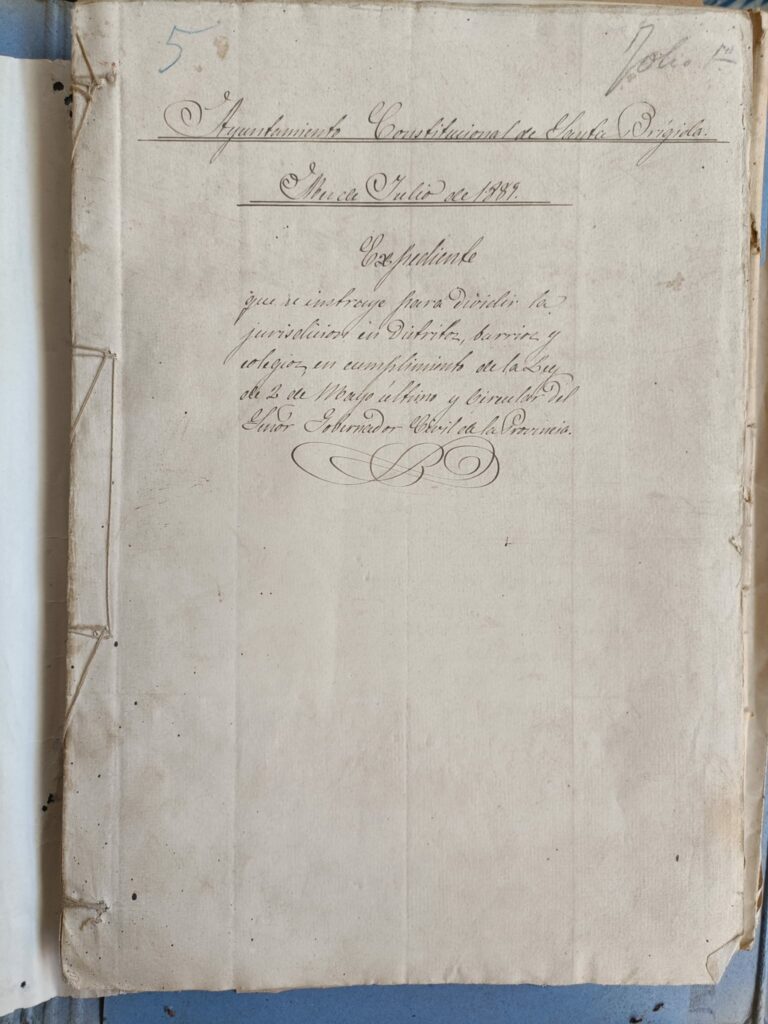 5
Folio 1º
Ayuntamiento Constitucional de Santa Brígida.
Mes de Julio de 1889.
Expediente
que se instruye para dividir la
jurisdicion en Distritos, barrios y
colegios, en cumplimiento de la Ley
de 2 de Mayo último y Circular del
Señor Gobernador Civil de la Provincia.